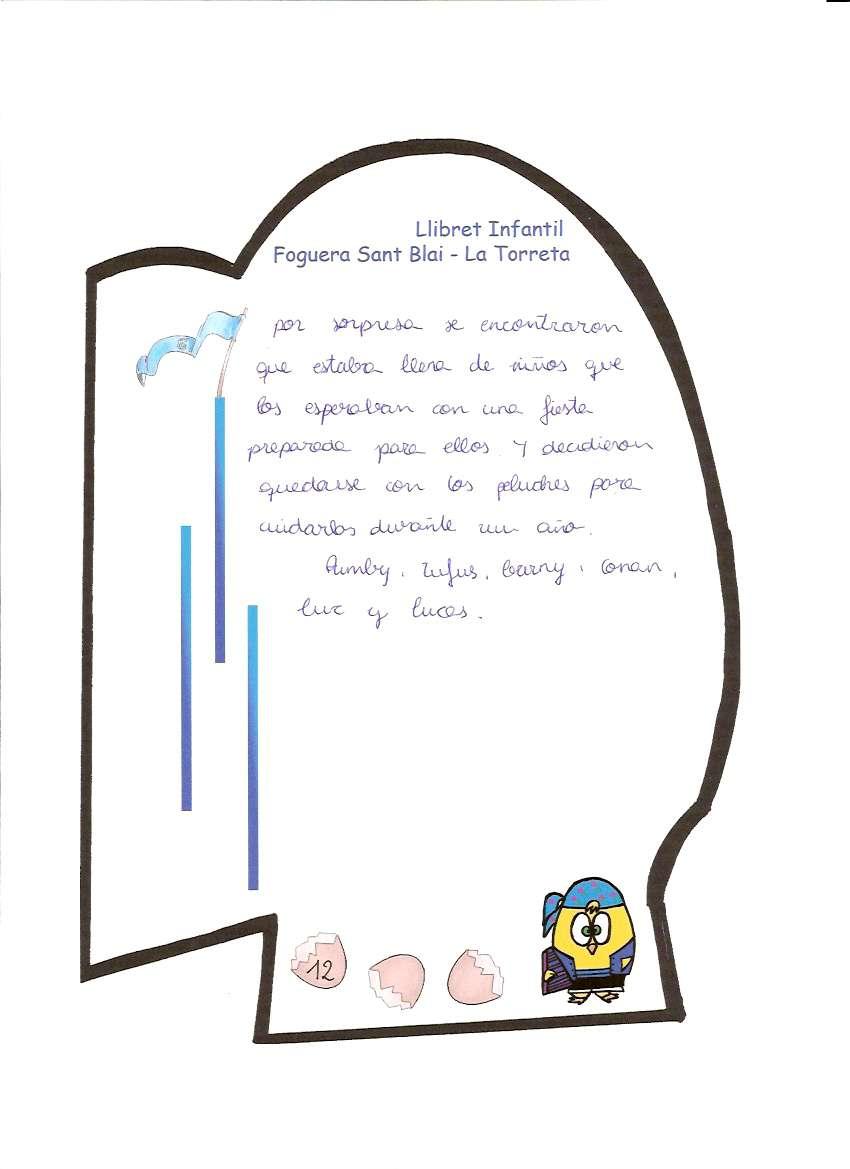 Llibret Infantil
Foguera Sant Blai - La Torreta
por sorpresa se encontraron
que estaba llena de niños que
los esperaban con una fiesta
preparada para ellos. Y decidieron
quedarse con los peluches para
cuidarlos durante un año.
rufus, barny, conan,
luz y lucas.
12